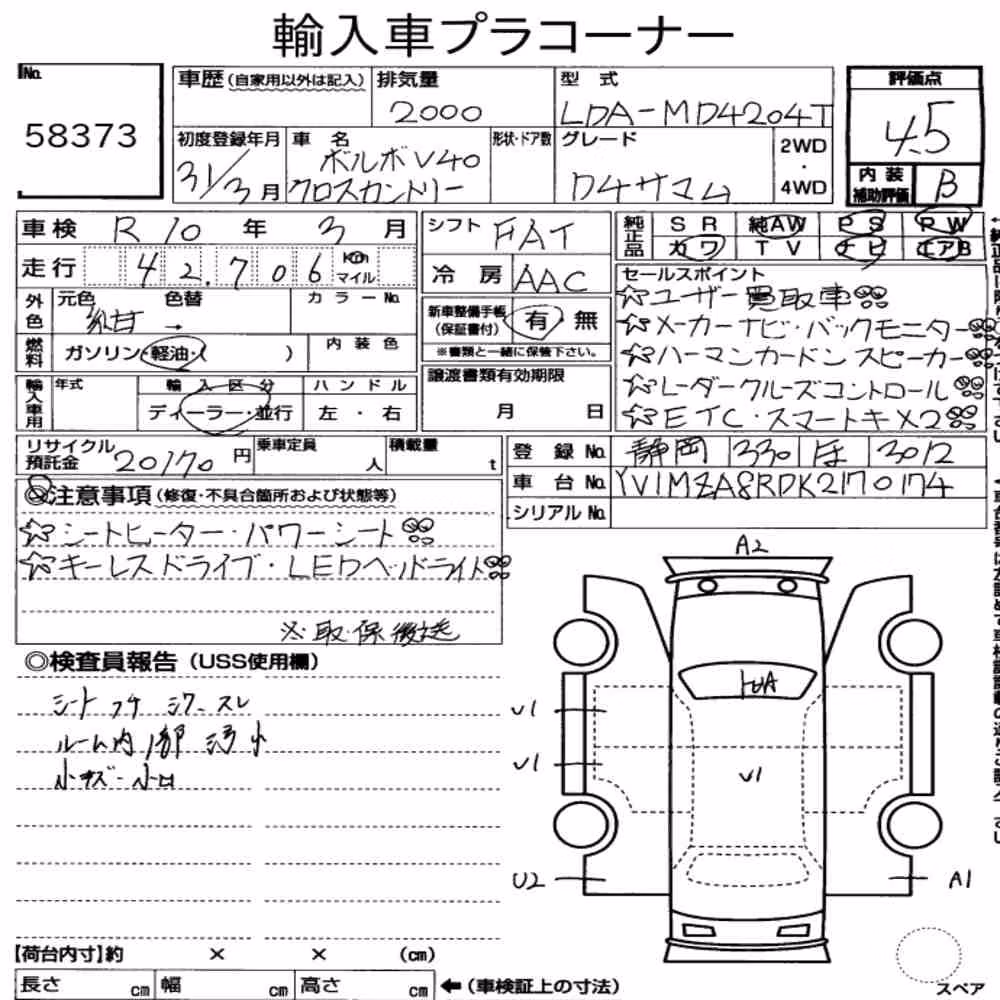 輸入車プラコーナー
No.
58373
車歴(自家用以外は記入)
排気量
2000
型 式
LDA-MD4204T
評価点
4.5
初度登録年月
31/3月
車 名
ボルボV40
クロスカントリー
形状・ドア数
グレード
D4サマム
2WD
・
4WD
内装
補助評価
B
車検 R10年 3月
シフト FAT
純正品
SR 純AW PS PW
カワ TV ナビ エアB
走行 42,706 Km マイル
冷房 AAC
セールスポイント
☆ユーザー買取車
☆メーカーナビ・バックモニター
☆ハーマンカードンスピーカー
☆レーダークルーズコントロール
☆ETC・スマートキX2
外色
元色 色替 カラーNo.
紺 →
新車整備手帳
(保証書付)
有 無
※書類と一緒に保管下さい。
燃料
ガソリン・軽油・( )
内装色
輸入車用
年式
輸入区分
ハンドル
ディーラー・並行
左・右
譲渡書類有効期限
月 日
リサイクル
預託金 20170円
乗車定員 人
積載量 t
登録No. 静岡 330 ほ 3012
車台No. YV1MZA8RDK2170174
シリアルNo.
注意事項(修復・不具合箇所および状態等)
☆シートヒーター・パワーシート
☆キーレスドライブ・LEDヘッドライト
※取・保後送
◎検査員報告(USS使用欄)
シートフチ シワ、スレ
ルーム内1部汚小
小キズ・小凹
A2
トUA
U1
U1
U1
U2
A1
スペア
【荷台内寸】約 × × (cm)
長さ cm 幅 cm 高さ cm ←(車検証上の寸法)